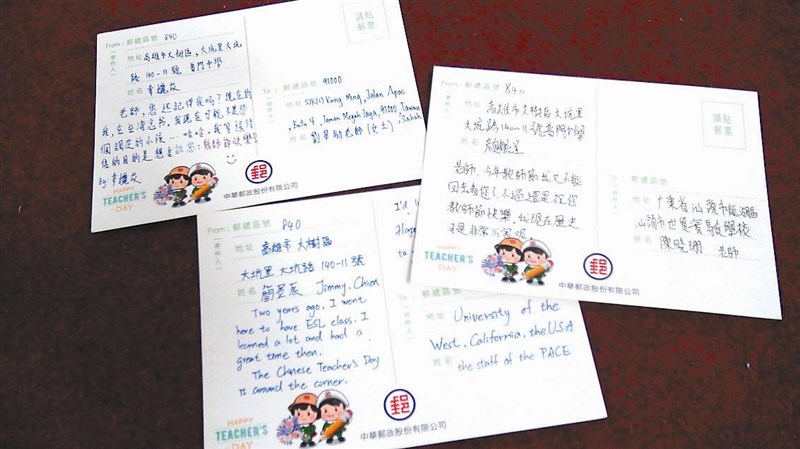 From: 郵遞區號 840
(寄件人)
地址 高雄市大樹區,大坑里大坑
路 140-11號 普門中學
姓名
老師,您还記得我嗎?現在的
我,在台灣
個調皮的小孩...哈哈,我寫這
的目的是想
教師節快樂
HAPPY
TEACHER'S
DAY
請貼
郵票
To: 郵遞區號 91000
(收件人)
地址 Kung Ming, Jalan Apas
Batu 4, Taman Megah Jaya, 91000, Tawau,
Sabah
老師(女士)
郵
中華郵政股份有限公司
From: 郵遞區號 840
(寄件人)
地址 高雄市大樹區大坑里
大坑路140-11號普門中學
姓名
老師,今年教師節我又不能
回去看您了,不過還是祝您
教師節快樂,
HAPPY
TEACHER'S
DAY
請貼
郵票
To: 郵遞區號
地址 广東省汕頭市龍湖區
汕頭市世貿實驗學校
姓名 陳曉珊 老師
郵
中華郵政股份有限公司
From: 郵遞區號 840
(寄件人)
地址 高雄市 大樹區
大坑里 大坑路 140-11號
姓名 簡呈辰 Jimmy, Chien
Two years ago, I went
here to have ESL class. I
learned a lot and had a
great time then.
The Chinese Teacher's Day
is around the corner.
HAPPY
TEACHER'S
DAY
I'd
Happ
To: 郵遞區號
(收件人)
地址 University of the
West, California, the USA
姓名 the staff of the PACE
郵
中華郵政股份有限公司